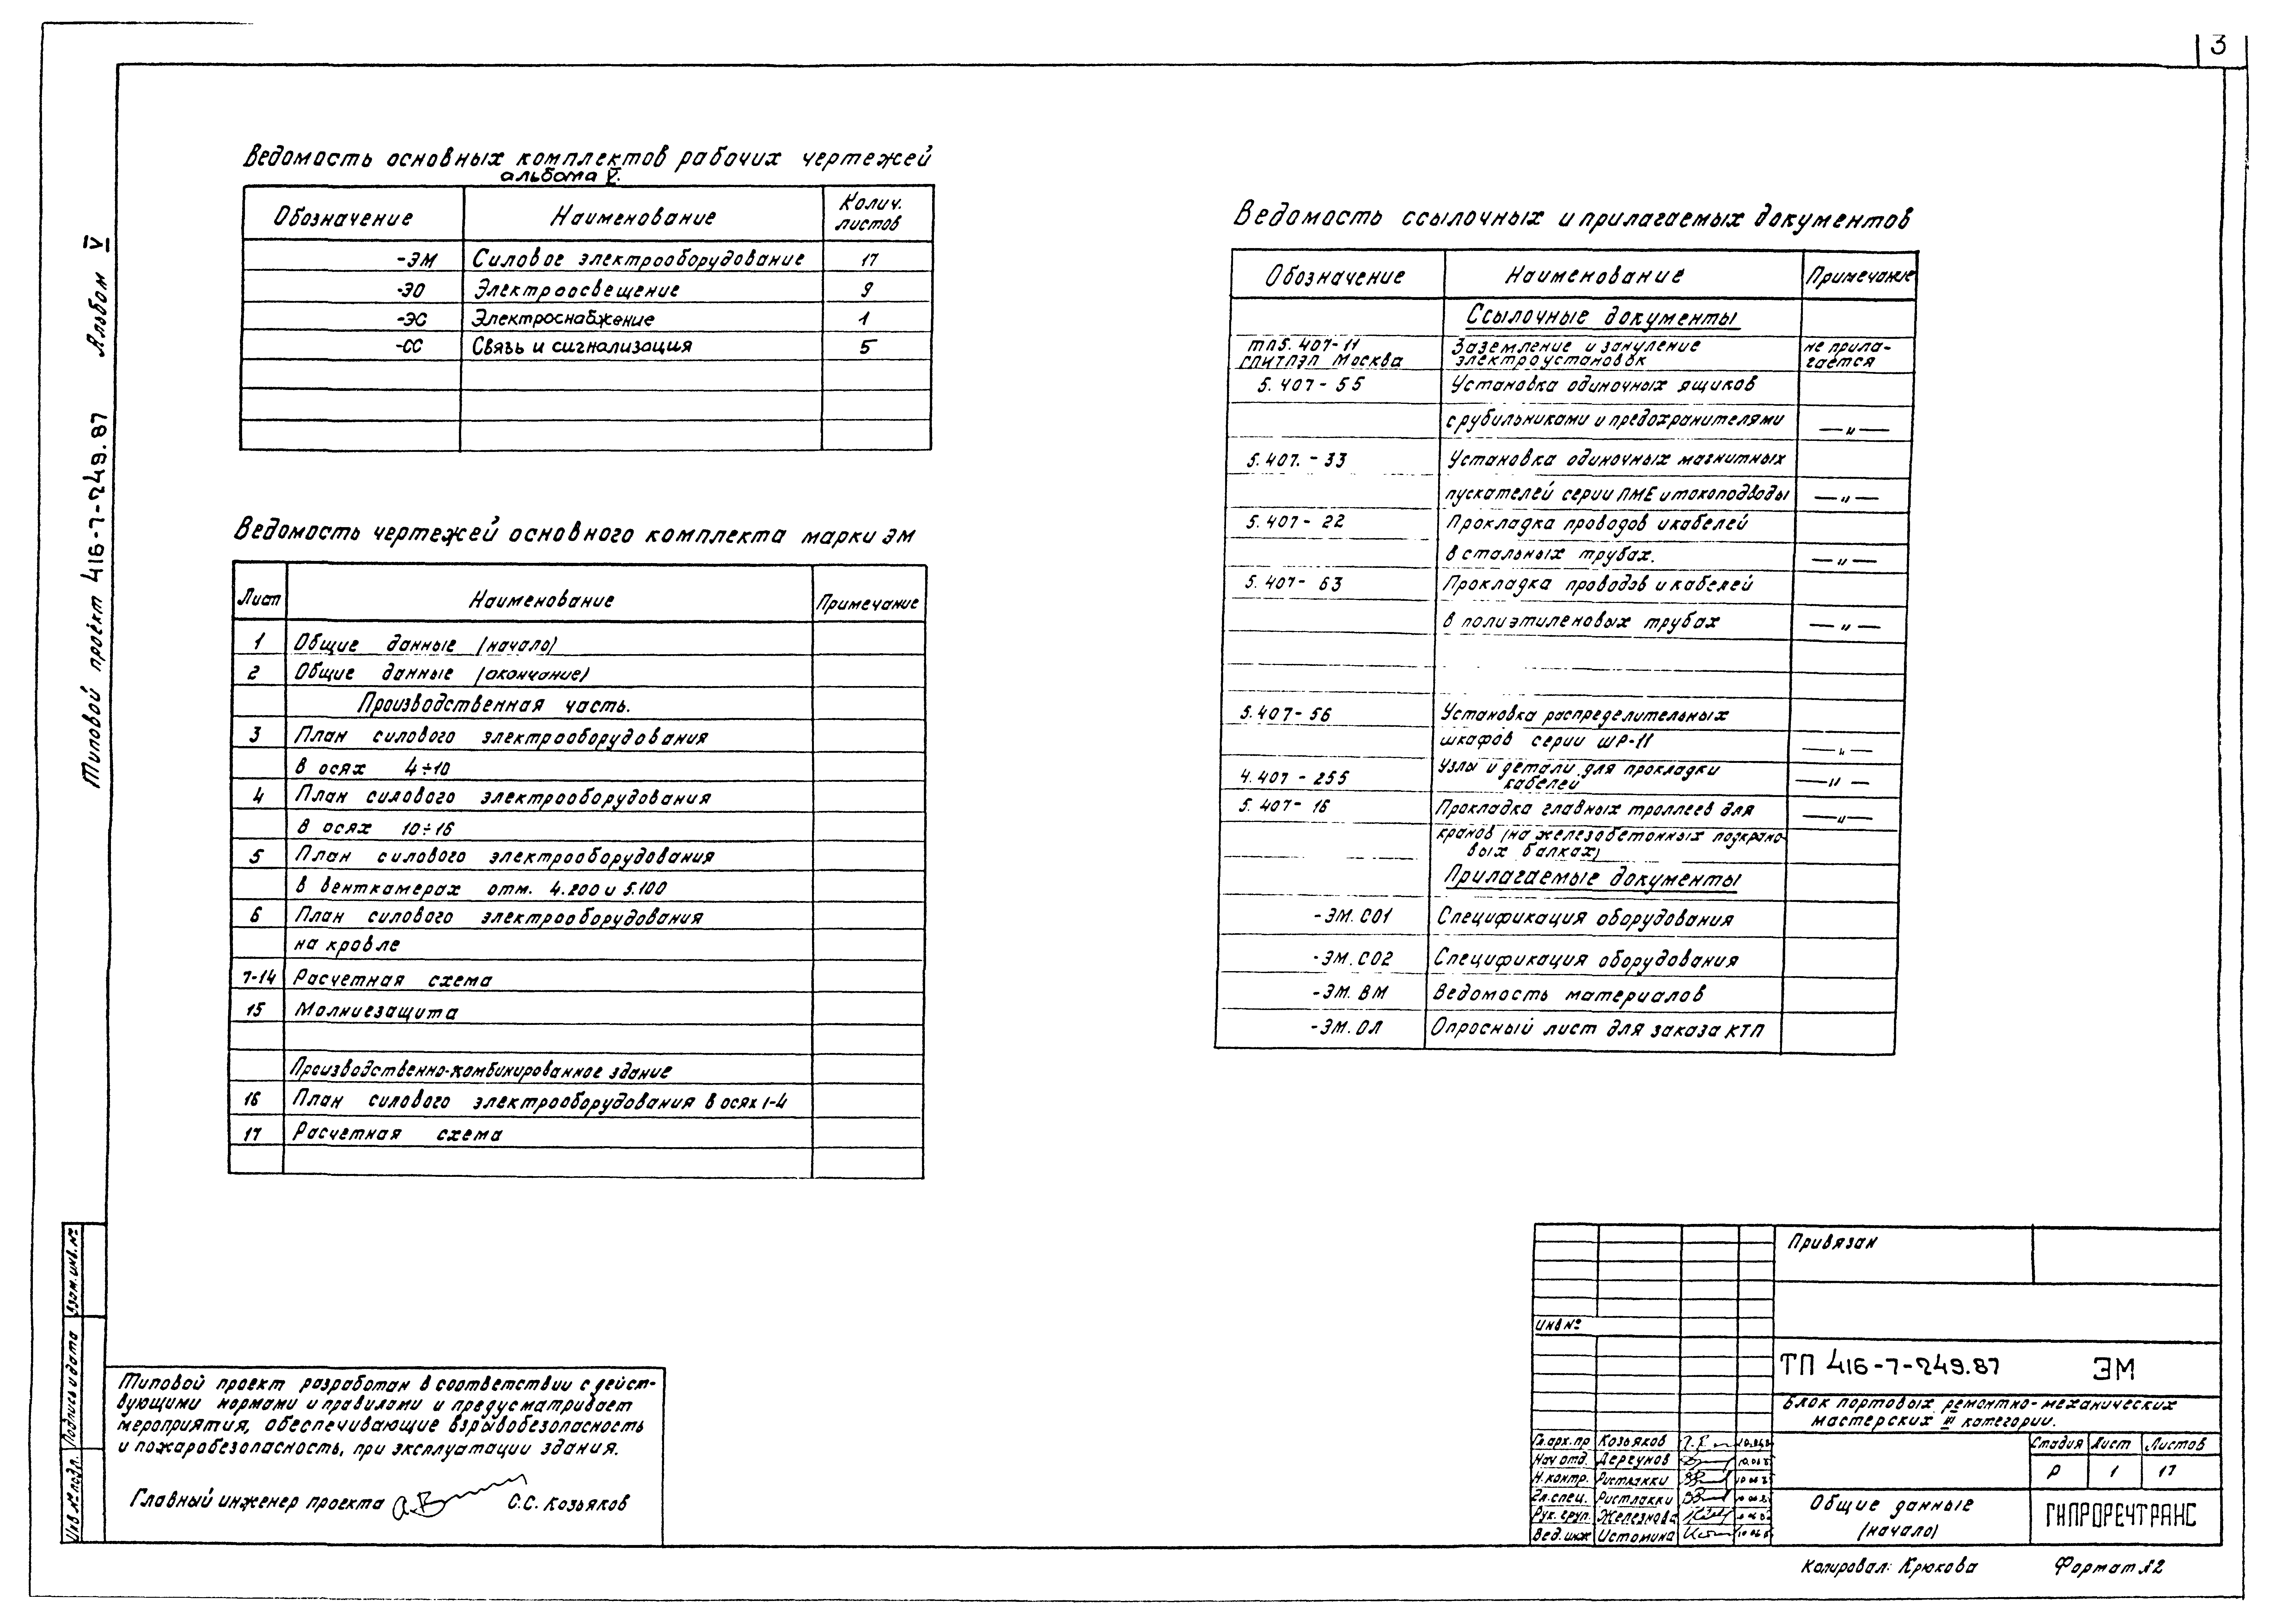 3
Типовой проект 416-7-249.87 Альбом V
Ведомость основных комплектов рабочих чертежей
альбома V.
Обозначение Наименование Колич. листов
-ЭМ Силовое электрооборудование 17
-ЭО Электроосвещение 9
-ЭС Электроснабжение 1
-СС Связь и сигнализация 5
Ведомость чертежей основного комплекта марки ЭМ
Лист Наименование Примечание
1 Общие данные (начало)
2 Общие данные (окончание)
Производственная часть.
3 План силового электрооборудования
в осях 4÷10
4 План силового электрооборудования
в осях 10÷16
5 План силового электрооборудования
в венткамерах отм. 4.200 и 5.100
6 План силового электрооборудования
на кровле
7-14 Расчетная схема
15 Молниезащита
Производственно-комбинированное здание
16 План силового электрооборудования в осях 1-4
17 Расчетная схема
Ведомость ссылочных и прилагаемых документов
Обозначение Наименование Примечание
Ссылочные документы
тп5.407-11 Заземление и зануление не прила-
ГПИТПЭП Москва электроустановок гается
5.407-55 Установка одиночных ящиков
с рубильниками и предохранителями —"—
5.407.-33 Установка одиночных магнитных
пускателей серии ПМЕ и токоподводы —"—
5.407-22 Прокладка проводов и кабелей
в стальных трубах. —"—
5.407-63 Прокладка проводов и кабелей
в полиэтиленовых трубах —"—
5.407-56 Установка распределительных
шкафов серии ШР-11 —"—
4.407-255 Узлы и детали для прокладки —"—
кабелей
5.407-16 Прокладка главных троллеев для —"—
кранов (на железобетонных подкрано-
вых балках)
Прилагаемые документы
-ЭМ.СО1 Спецификация оборудования
-ЭМ.СО2 Спецификация оборудования
-ЭМ.ВМ Ведомость материалов
-ЭМ.ОЛ Опросный лист для заказа КТП
Инв № подл. Подпись и дата Взам. инв. №
Типовой проект разработан в соответствии с дейст-
вующими нормами и правилами и предусматривает
мероприятия, обеспечивающие взрывобезопасность
и пожаробезопасность, при эксплуатации здания.
Главный инженер проекта С.С. Козьяков
Привязан
Инв №
ТП 416-7-249.87 ЭМ
Блок портовых ремонтно-механических
мастерских III категории.
Гл.арх.пр Козьяков
Нач отд. Дергунов
Н.контр. Ристлакки
Гл.спец. Ристлакки
Рук. груп. Железнова
Вед. инж Истомина
Стадия Лист Листов
Р 1 17
Общие данные
(начало)
ГИПРОРЕЧТРАНС
Копировал: Крюкова Формат А2